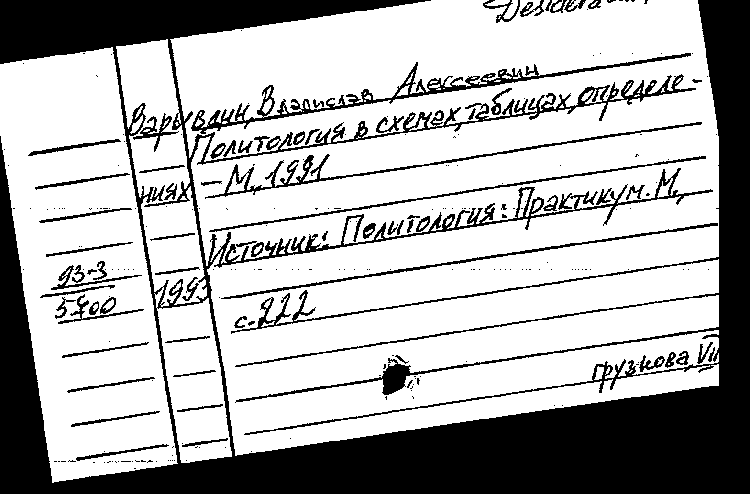 Desiderata
Варывдин, Владислав Алексеевич
Политология в схемах, таблицах, определе-
ниях — М., 1991
Источник: Политология: Практикум. М.,
1993
с. 222
93-3
5400
грузкова, VII